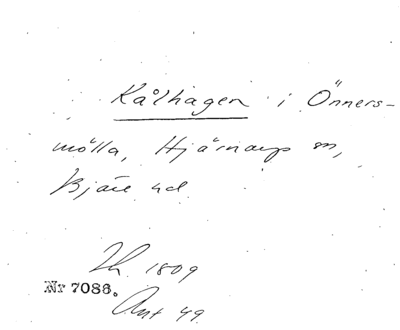 Kålhagen i Önners-
mölla, Hjärnarps sn,
Bjäre hd
Th. 1809
Nr 7086.
Ant 49